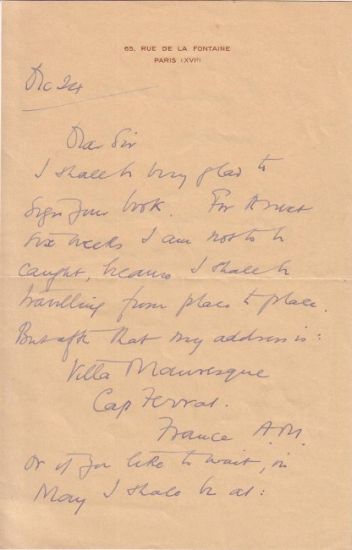 65, RUE DE LA FONTAINE
PARIS (XVIᵉ)
Dec 24
Dear Sir
I shall be very glad to
sign your book. For about
six weeks I am not to be
caught, because I shall be
travelling from place to place.
But after that my address is:
Villa Mauresque
Cap Ferrat.
France A.M.
Or if you like to wait, in
May I shall be at: